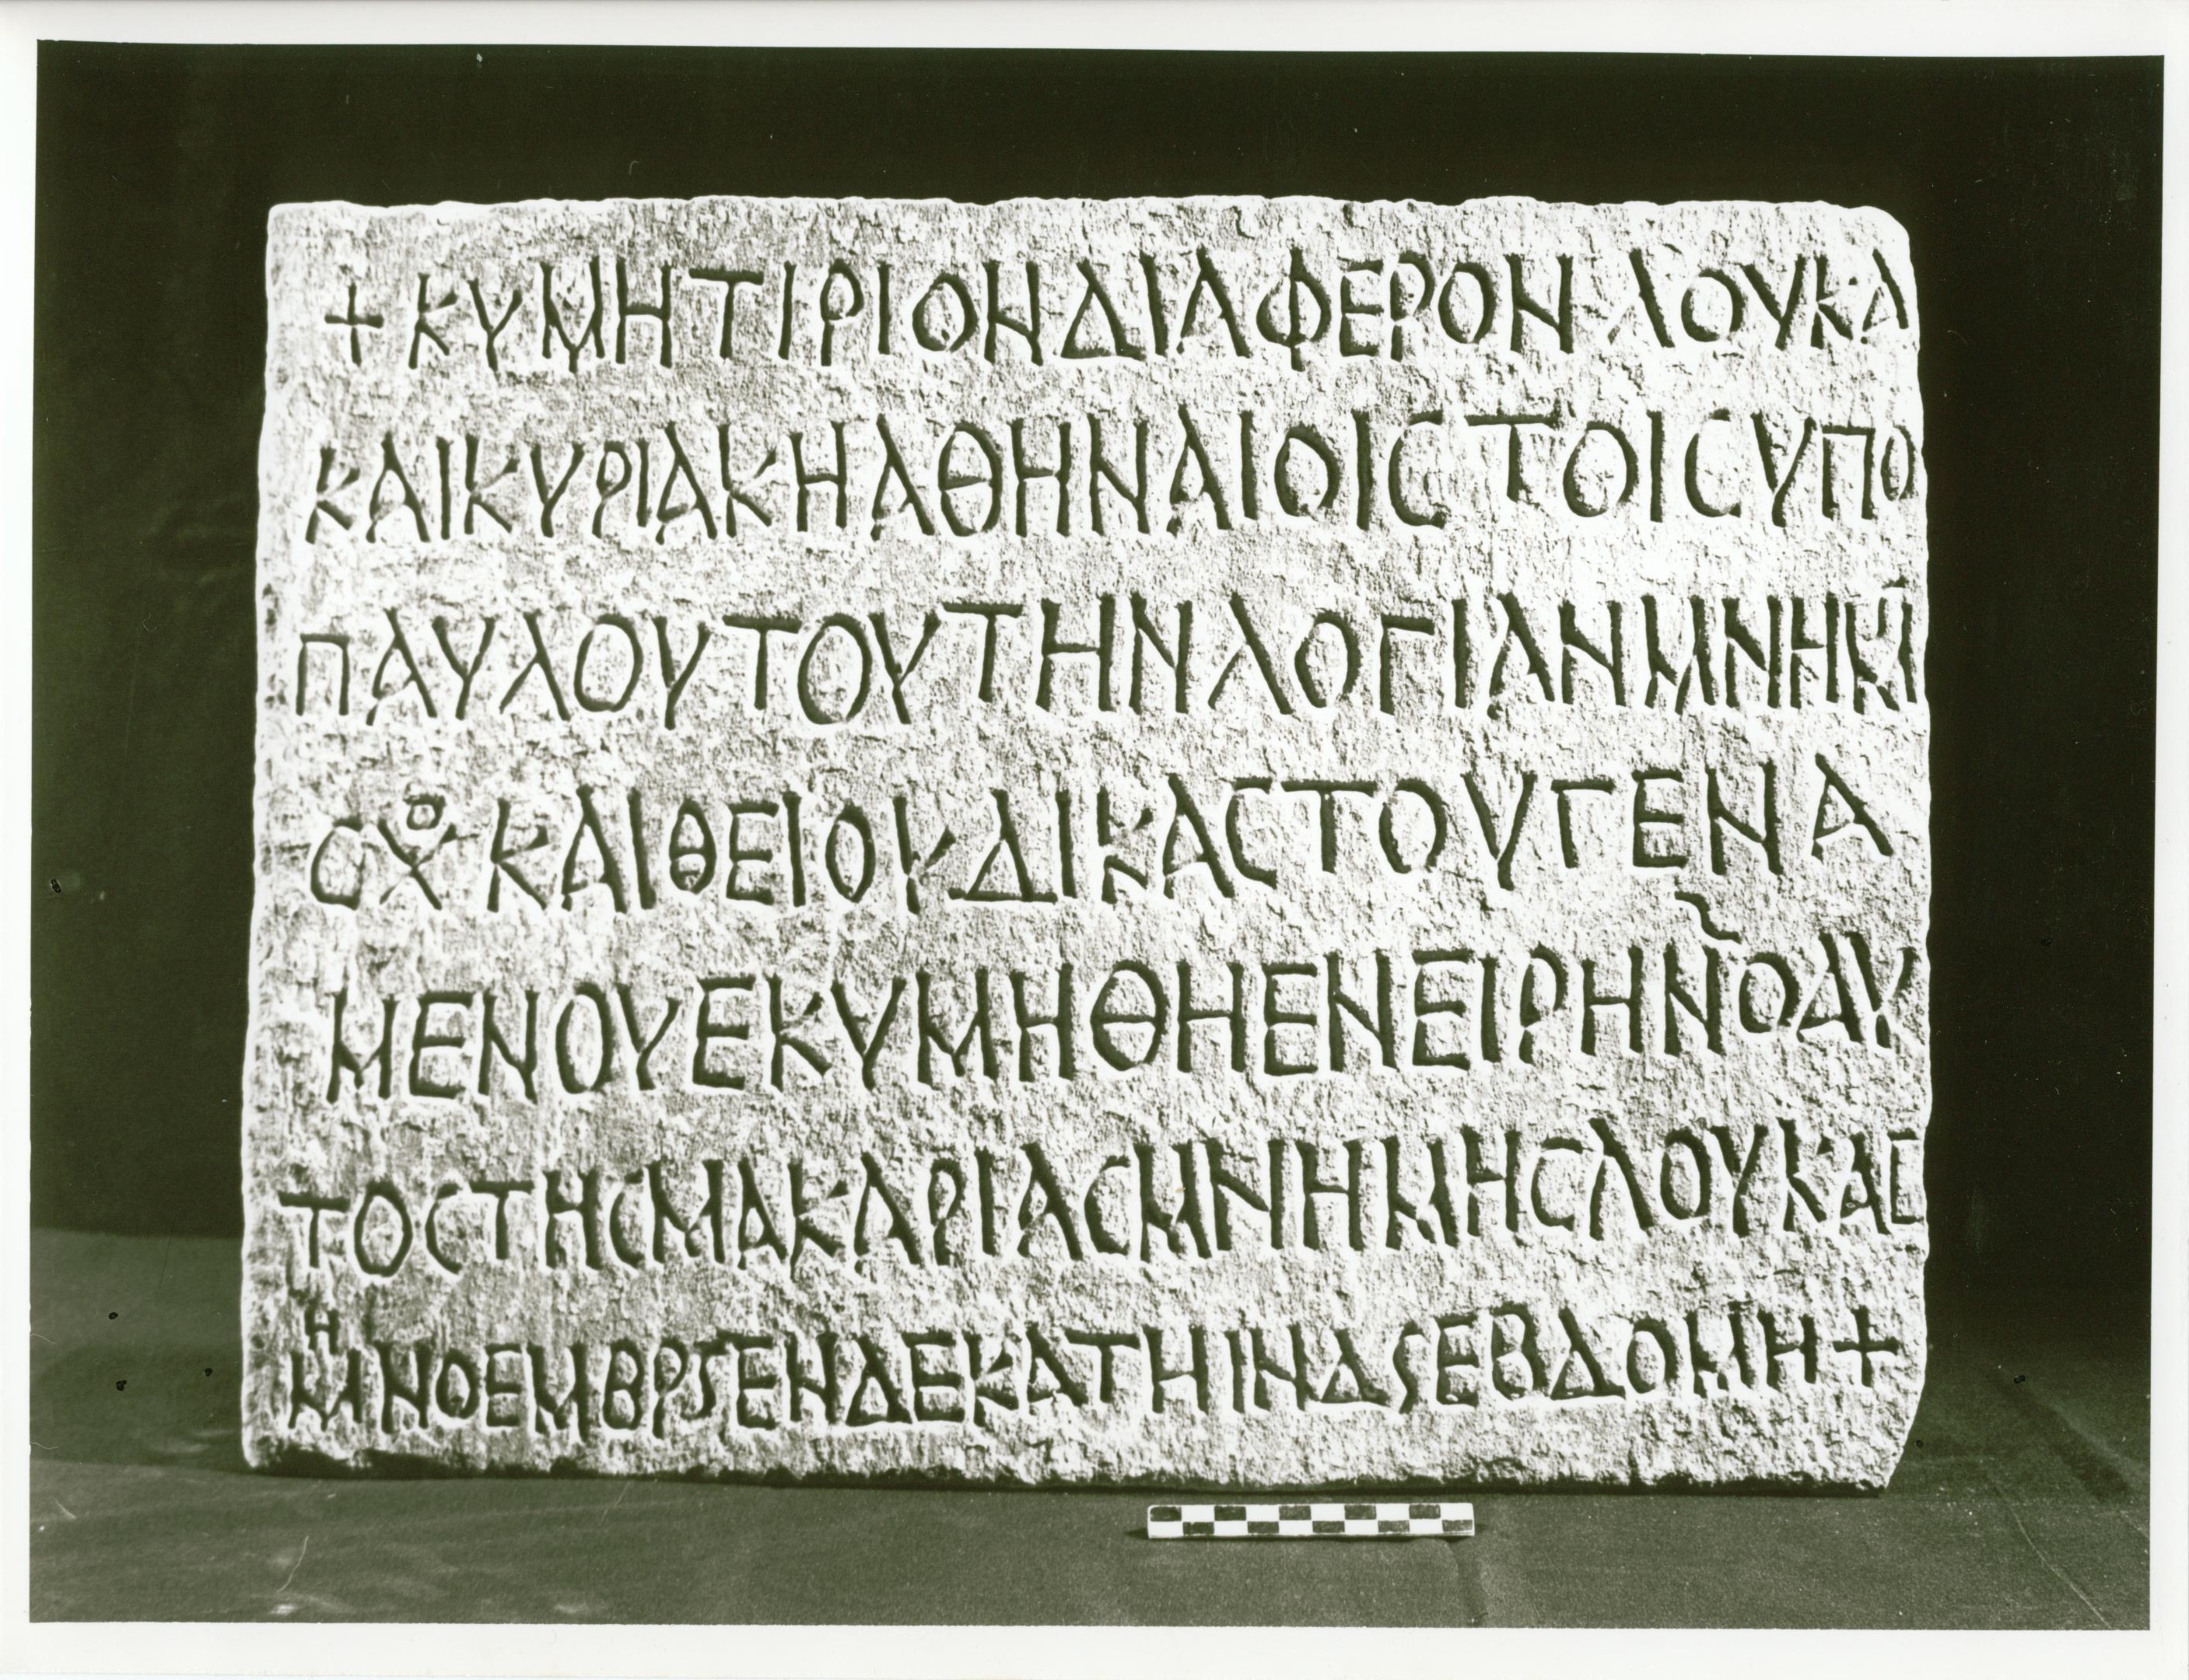 + ΚΥΜΗΤΙΡΙΟΝΔΙΑΦΕΡΟΝ ΛΟΥΚΑ
ΚΑΙΚΥΡΙΑΚΗΑΘΗΝΑΙΟΙϹ ΤΟΙϹΥΠΟ
ΠΑΥΛΟΥΤΟΥΤΗΝΛΟΓΙΑΝΜΝΗΜΙ
ϹΧΟ ΚΑΙΘΕΙΟΥΔΙΚΑϹΤΟΥΓΕΝΑ
ΜΕΝΟΥΕΚΥΜΗΘΗΕΝΕΙΡΗΝΟΑΥ
ΤΟϹΤΗϹΜΑΚΑΡΙΑϹΜΝΗΜΗϹΛΟΥΚΑϹ
ΜΗΝΟΕΜΒΡSΕΝΔΕΚΑΤΗΙΝΔSΕΒΔΟΜΗ+